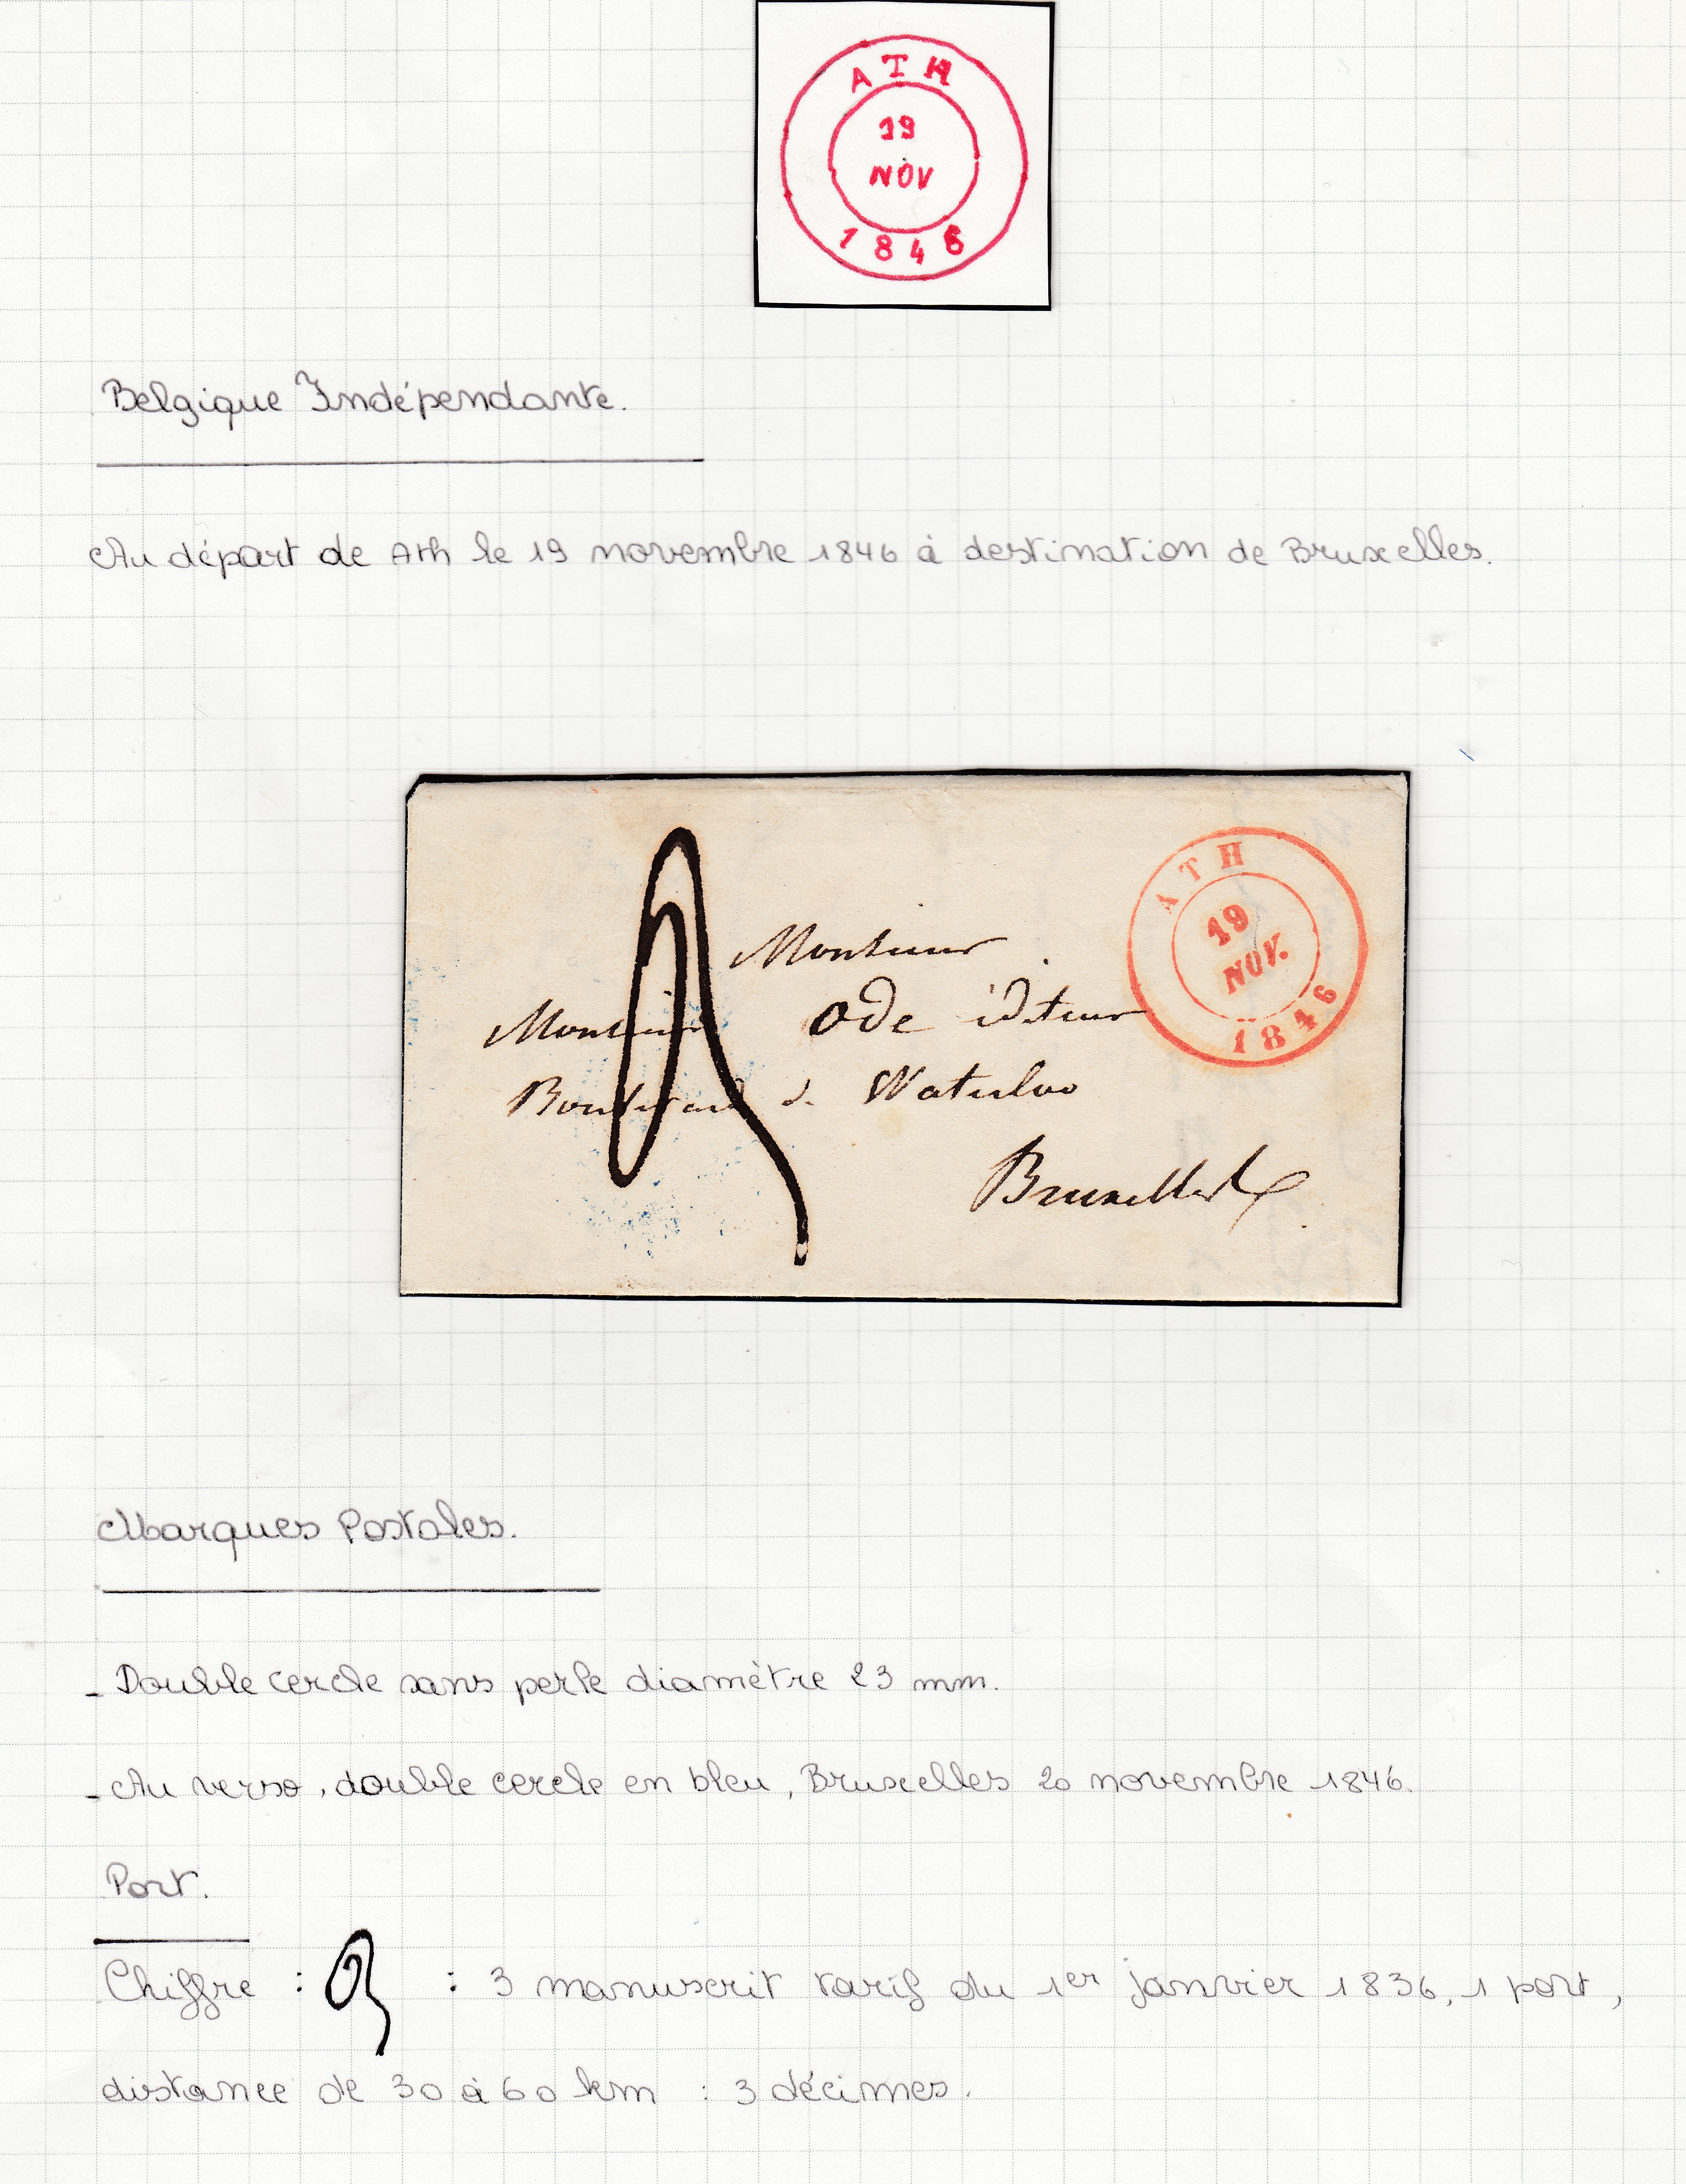 ATH
19
NOV
1846
Belgique Indépendante.
Au départ de Ath le 19 novembre 1846 à destination de Bruxelles.
ATH
19
NOV.
1846
Monsieur
Monsieur Ode éditeur
Boulevard de Waterloo
Bruxelles
Marques Postales.
- Double cercle sans perle diamètre 23 mm.
- Au verso, double cercle en bleu, Bruxelles 20 novembre 1846.
Port.
Chiffre : 3 : 3 manuscrit tarif du 1er janvier 1836, 1 port,
distance de 30 à 60 km : 3 décimes.